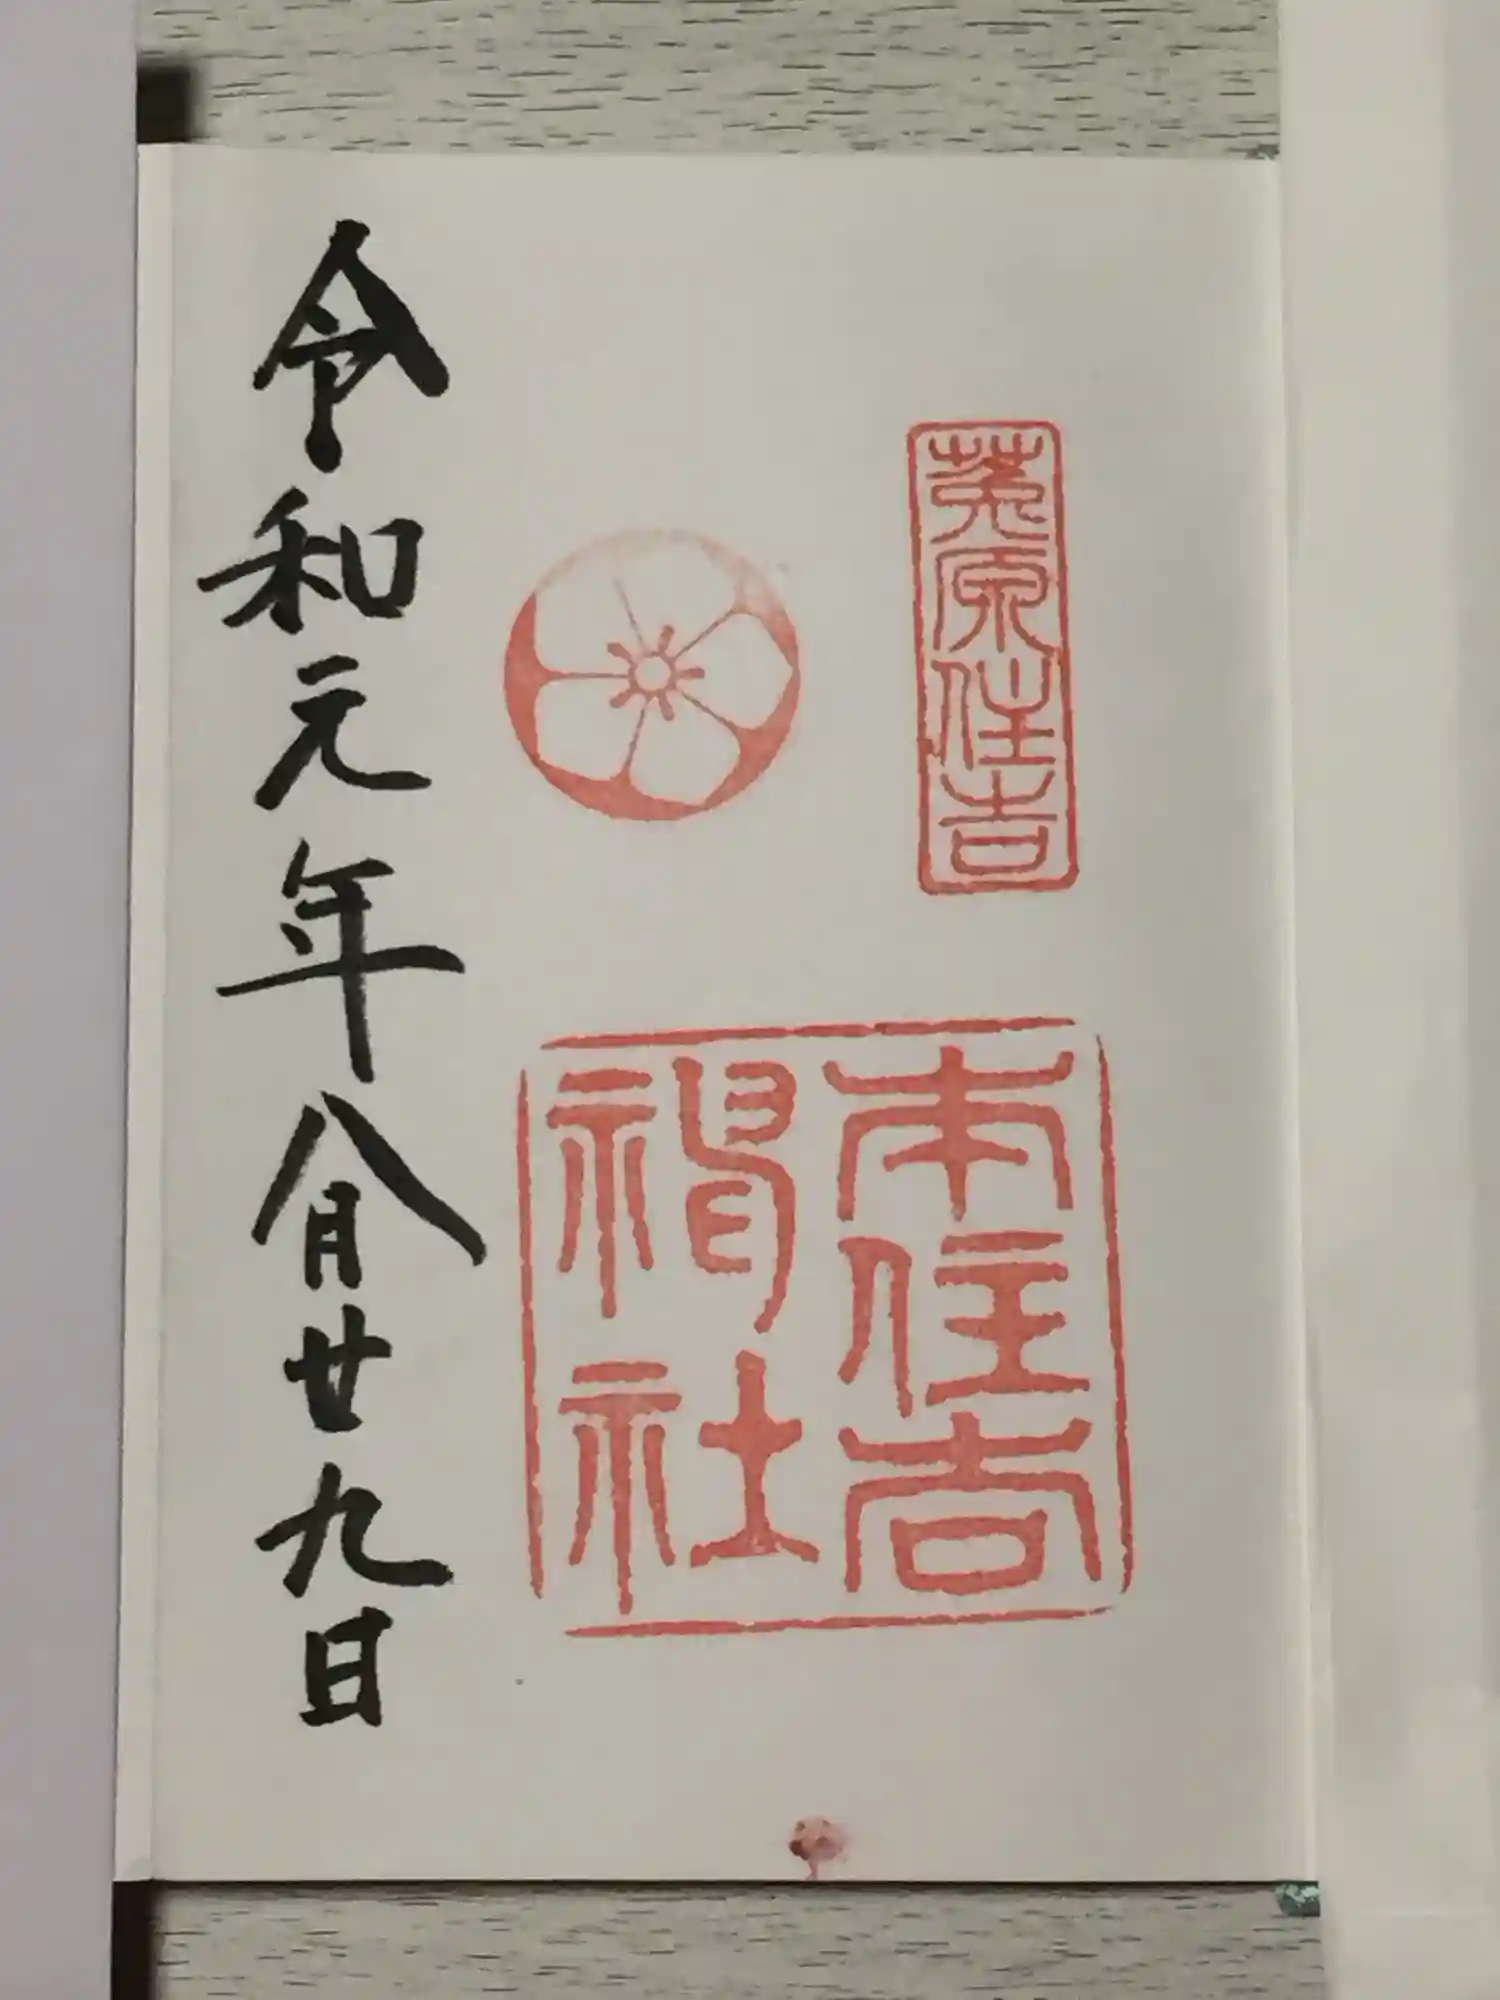 菟原住吉
本住吉
神社
令和元年八月廿九日